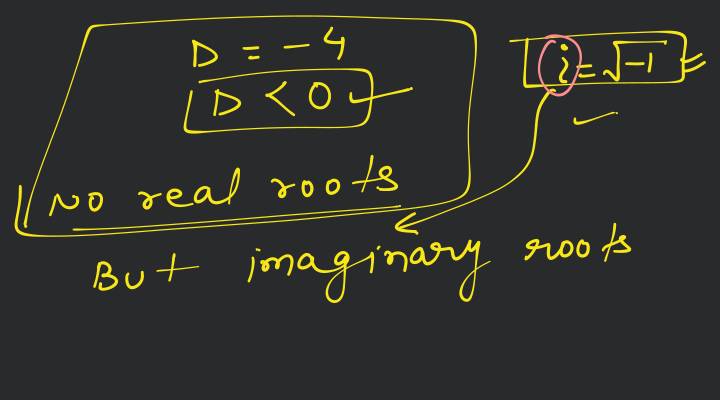 D = -4
i = √-1
D < 0
No real roots
But imaginary roots